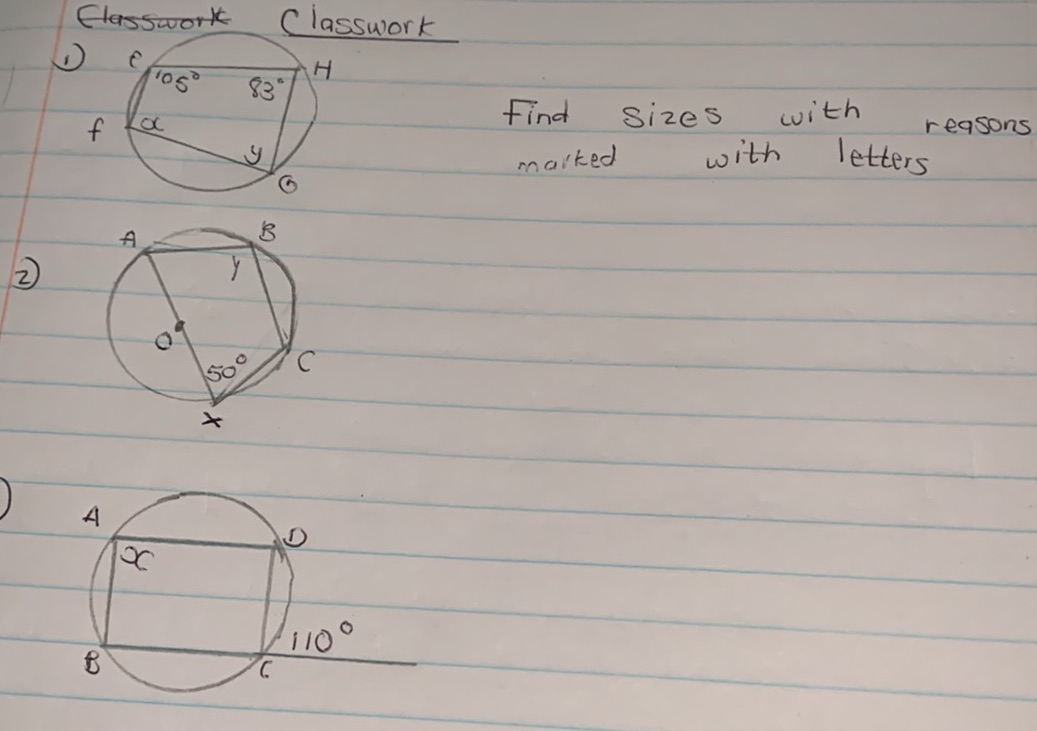 Classwork Classwork
1) E 105° 83° H
f x y G
Find sizes with reasons
marked with letters
2) A B
y
O
50° C
X
) A D
x
110°
B C